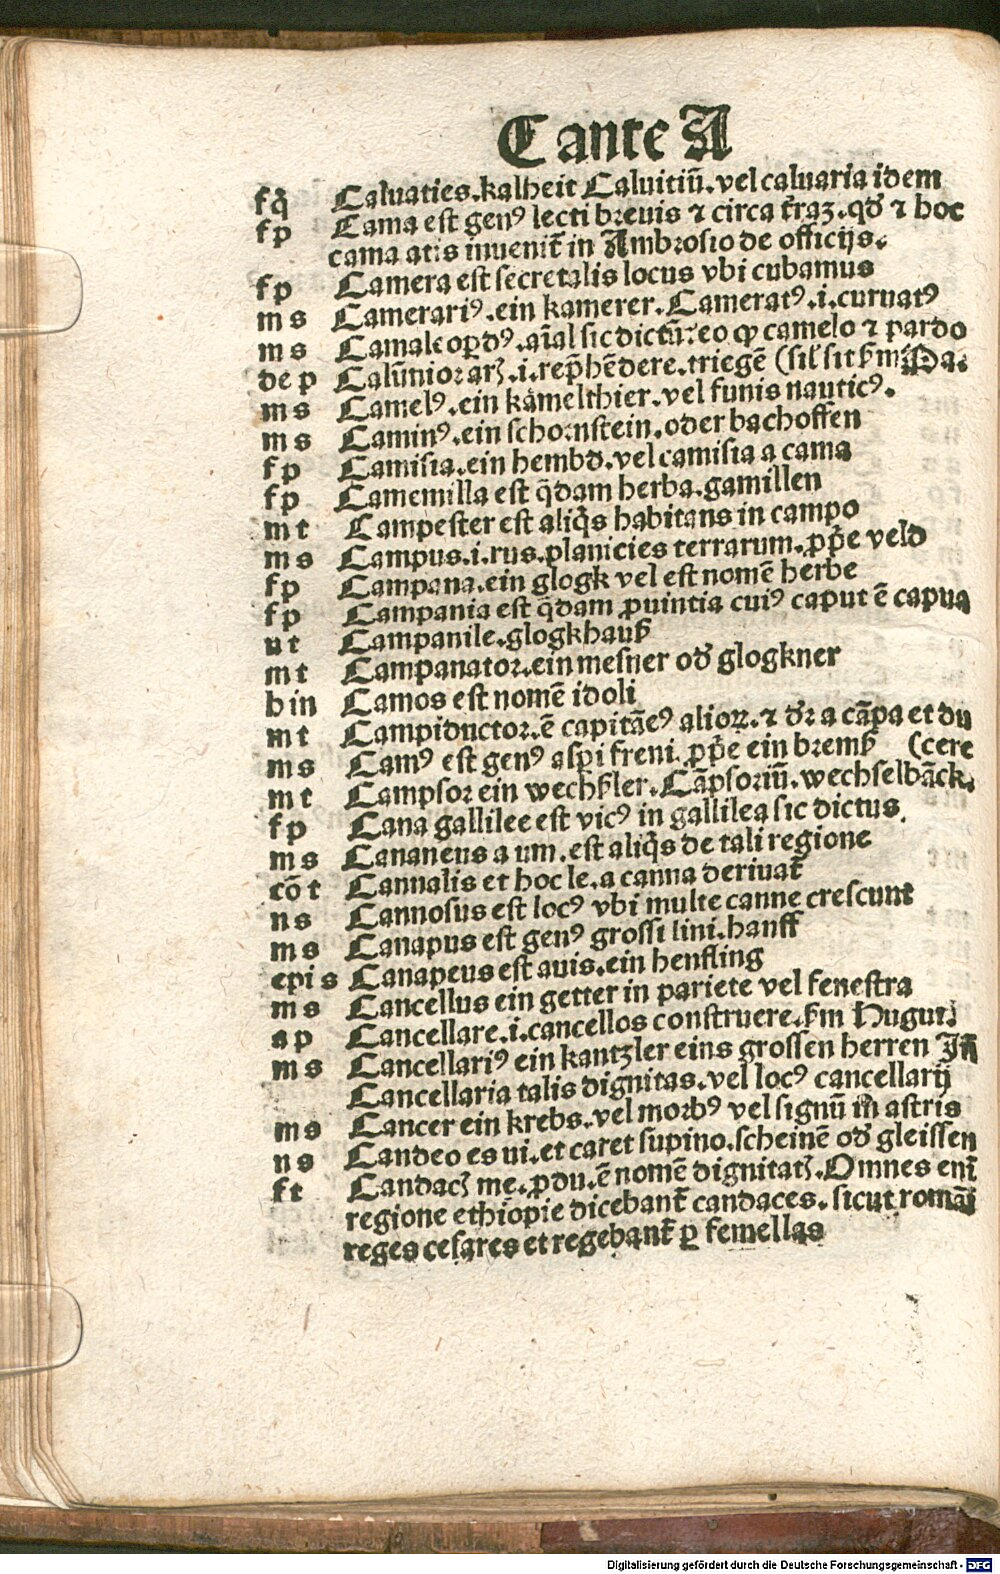 C ante A
fq̄ Caluaties.kalheit Caluitiū.vel caluaria idem
fp Cama est genꝰ lecti breuis ⁊ circa t̄raz.qđ ⁊ hoc
cama atis inuenit̄ in Ambrosio de officijs.
fp Camera est secretalis locus vbi cubamus
ms Camerariꝰ.ein kamerer.Cameratꝰ.i.curuatꝰ
ms Camaleopdꝰ.aīal sic dictū.eo ꝙ camelo ⁊ pardo
de p Calūnior arꝭ.i.rep̄hēdere.triegē (sil' sit ẜm Pa.
ms Camelꝰ.ein kamelthier.vel funis nauticꝰ.
ms Caminꝰ.ein schornstein.oder bachoffen
fp Camisia.ein hembd.vel camisia a cama
fp Camemilla est q̄dam herba.gamillen
mt Campester est aliq̄s habitans in campo
ms Campus.i.rus.planicies terrarum.ꝓp̄e veld
fp Campana.ein glogk vel est nomē herbe
fp Campania est q̄dam ꝓuintia cuiꝰ caput ē capua
nt Campanile.glogkhauß
mt Campanator.ein mesner ođ glogkner
bin Camos est nomē idoli
mt Campiductor.ē capitāeꝰ alioꝝ.⁊ dr̄ a cāpa et du
ms Camꝰ est genꝰ aspi freni.ꝓp̄e ein bremß (cere
mt Campsor ein wechßler.Cāpsoriū.wechselbāck.
fp Cana gallilee est vicꝰ in gallilea sic dictus.
ms Cananeus a um.est aliq̄s de tali regione
cōt Cannalis et hoc le.a canna deriuat̄
ns Cannosus est locꝰ vbi multe canne crescunt
ms Canapus est genꝰ grossi lini.hanff
epi s Canapeus est auis.ein henfling
ms Cancellus ein getter in pariete vel fenestra
ap Cancellare.i.cancellos construere.ẜm Hugut.
ms Cancellariꝰ ein kantzler eins grossen herren Iñ
Cancellaria talis dignitas.vel locꝰ cancellarij
ms Cancer ein krebs.vel morbꝰ vel signū in astris
ns Candeo es ui.et caret supino.scheinē ođ gleissen
ft Candacꝭ me.ꝓdu.ē nomē dignitatꝭ.Omnes eni᷒
regione ethiopie dicebant̄ candaces.sicut romāi
reges cesares et regebant̄ ꝑ femellas
Digitalisierung gefördert durch die Deutsche Forschungsgemeinschaft - DFG